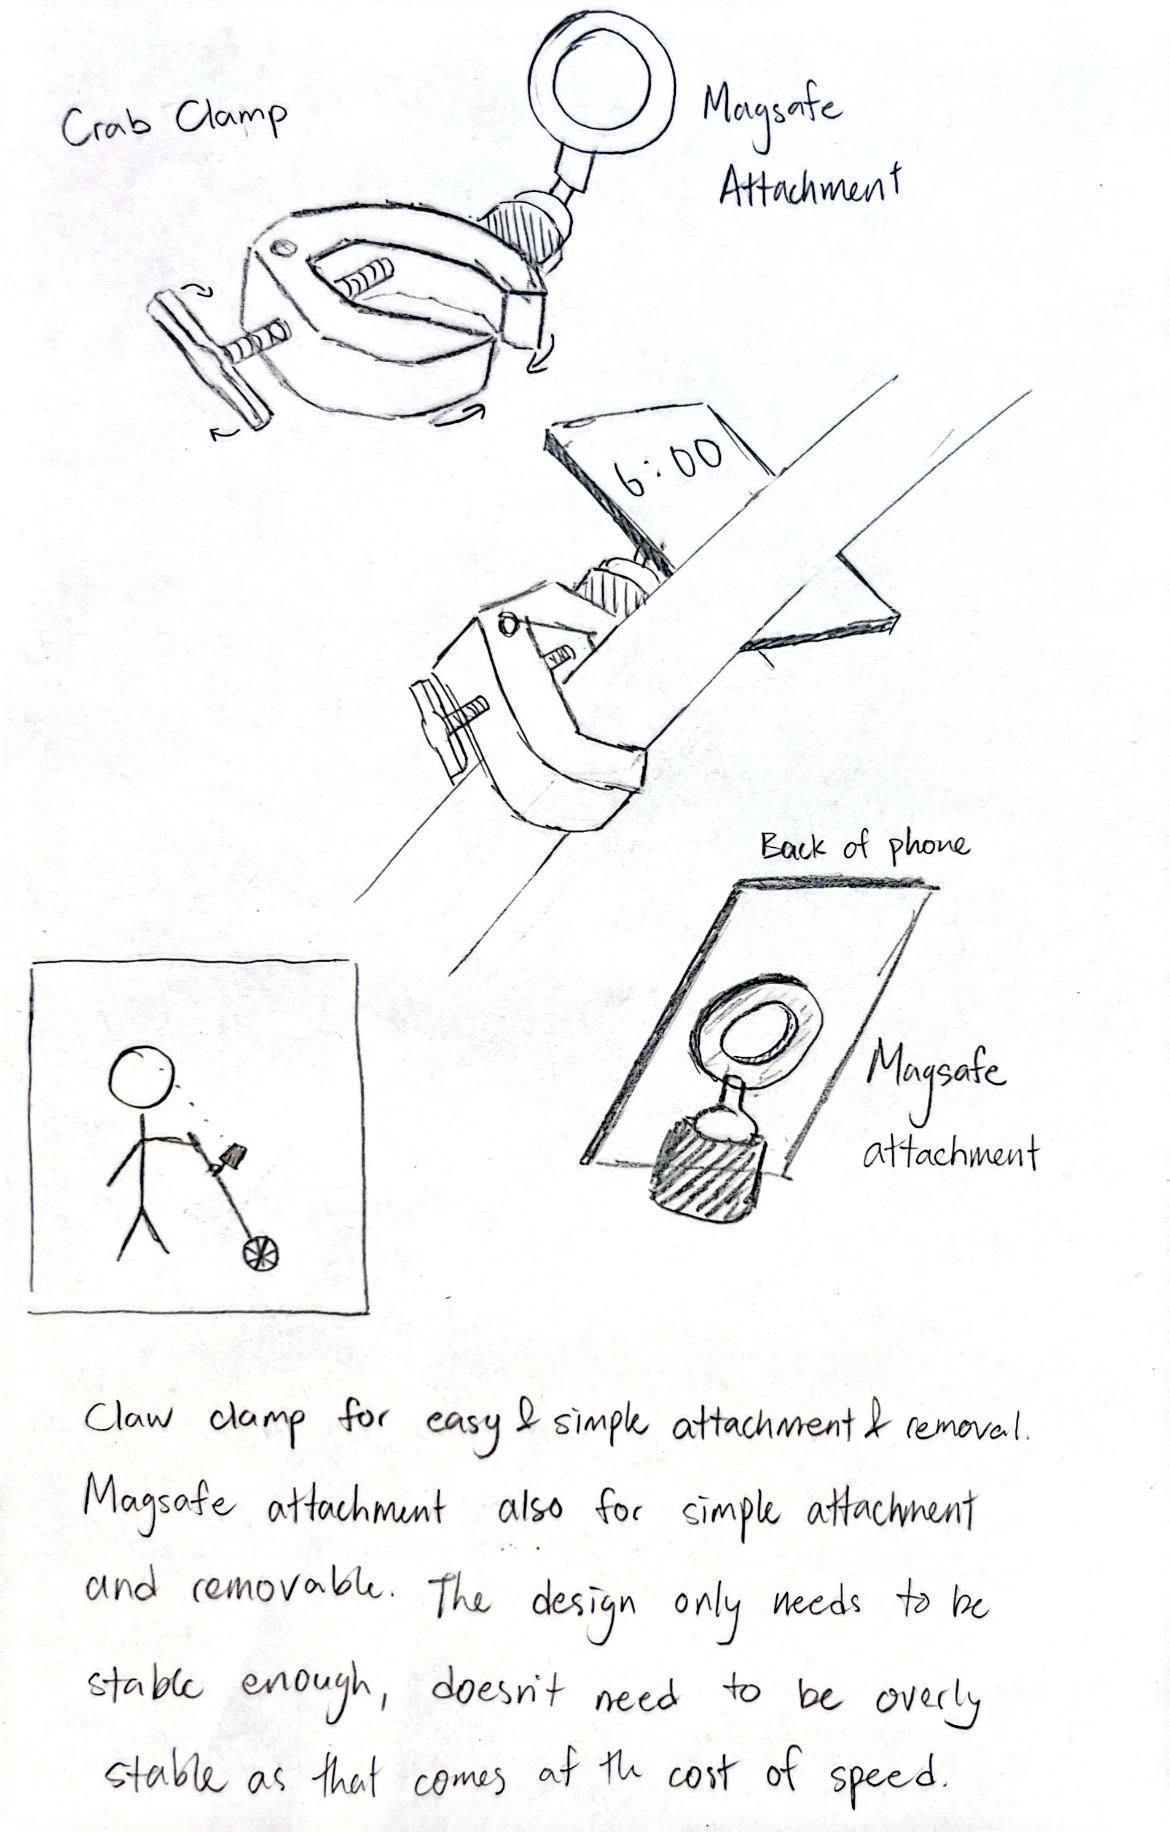 Crab Clamp
Magsafe
Attachment
6:00
Back of phone
Magsafe
attachment
Claw clamp for easy & simple attachment & removal.
Magsafe attachment also for simple attachment
and removable. The design only needs to be
stable enough, doesn't need to be overly
stable as that comes at the cost of speed.